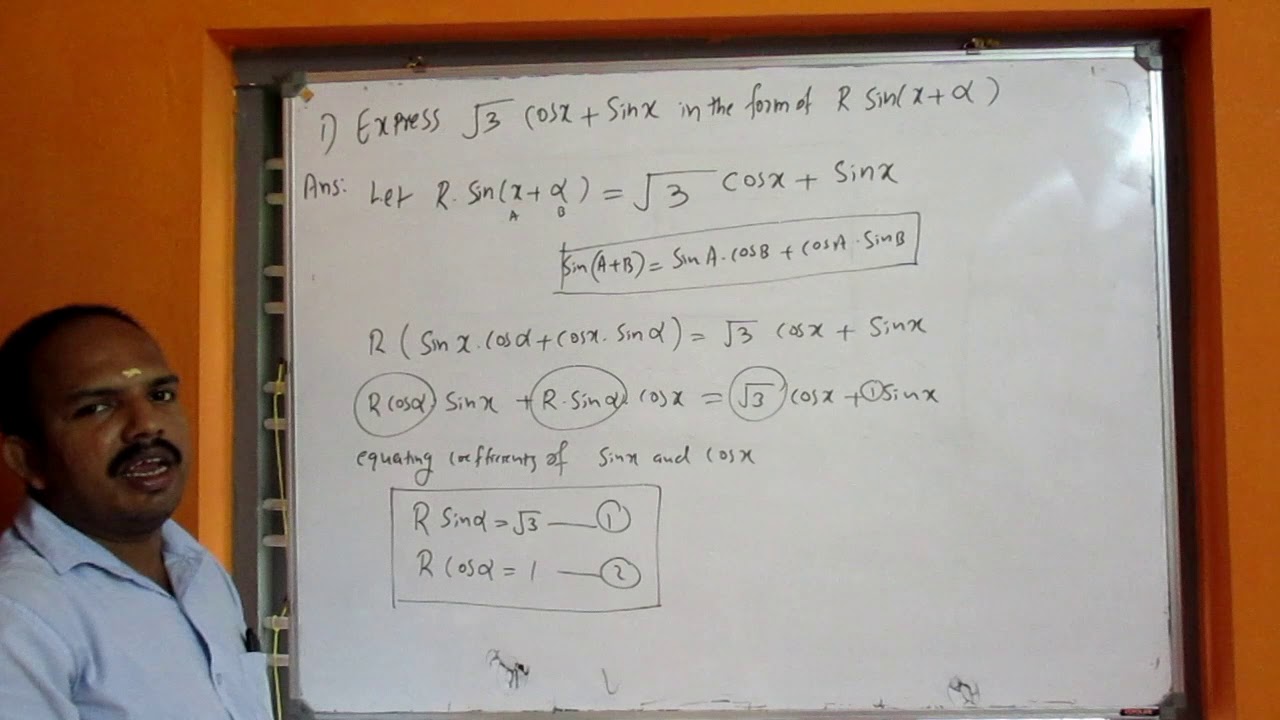 1) Express √3 cosx + Sinx in the form of R Sin(x+α)
Ans: Let R. Sin(x+α) = √3 cosx + Sinx
A B
Sin(A+B) = SinA.cosB + cosA.SinB
R (Sinx.cosα+cosx.Sinα) = √3 cosx + Sinx
(Rcosα) Sinx + R.Sinα cosx = √3 cosx + 1 Sinx
equating coefficients of Sinx and cosx
R Sinα = √3 — 1
R cosα = 1 — 2